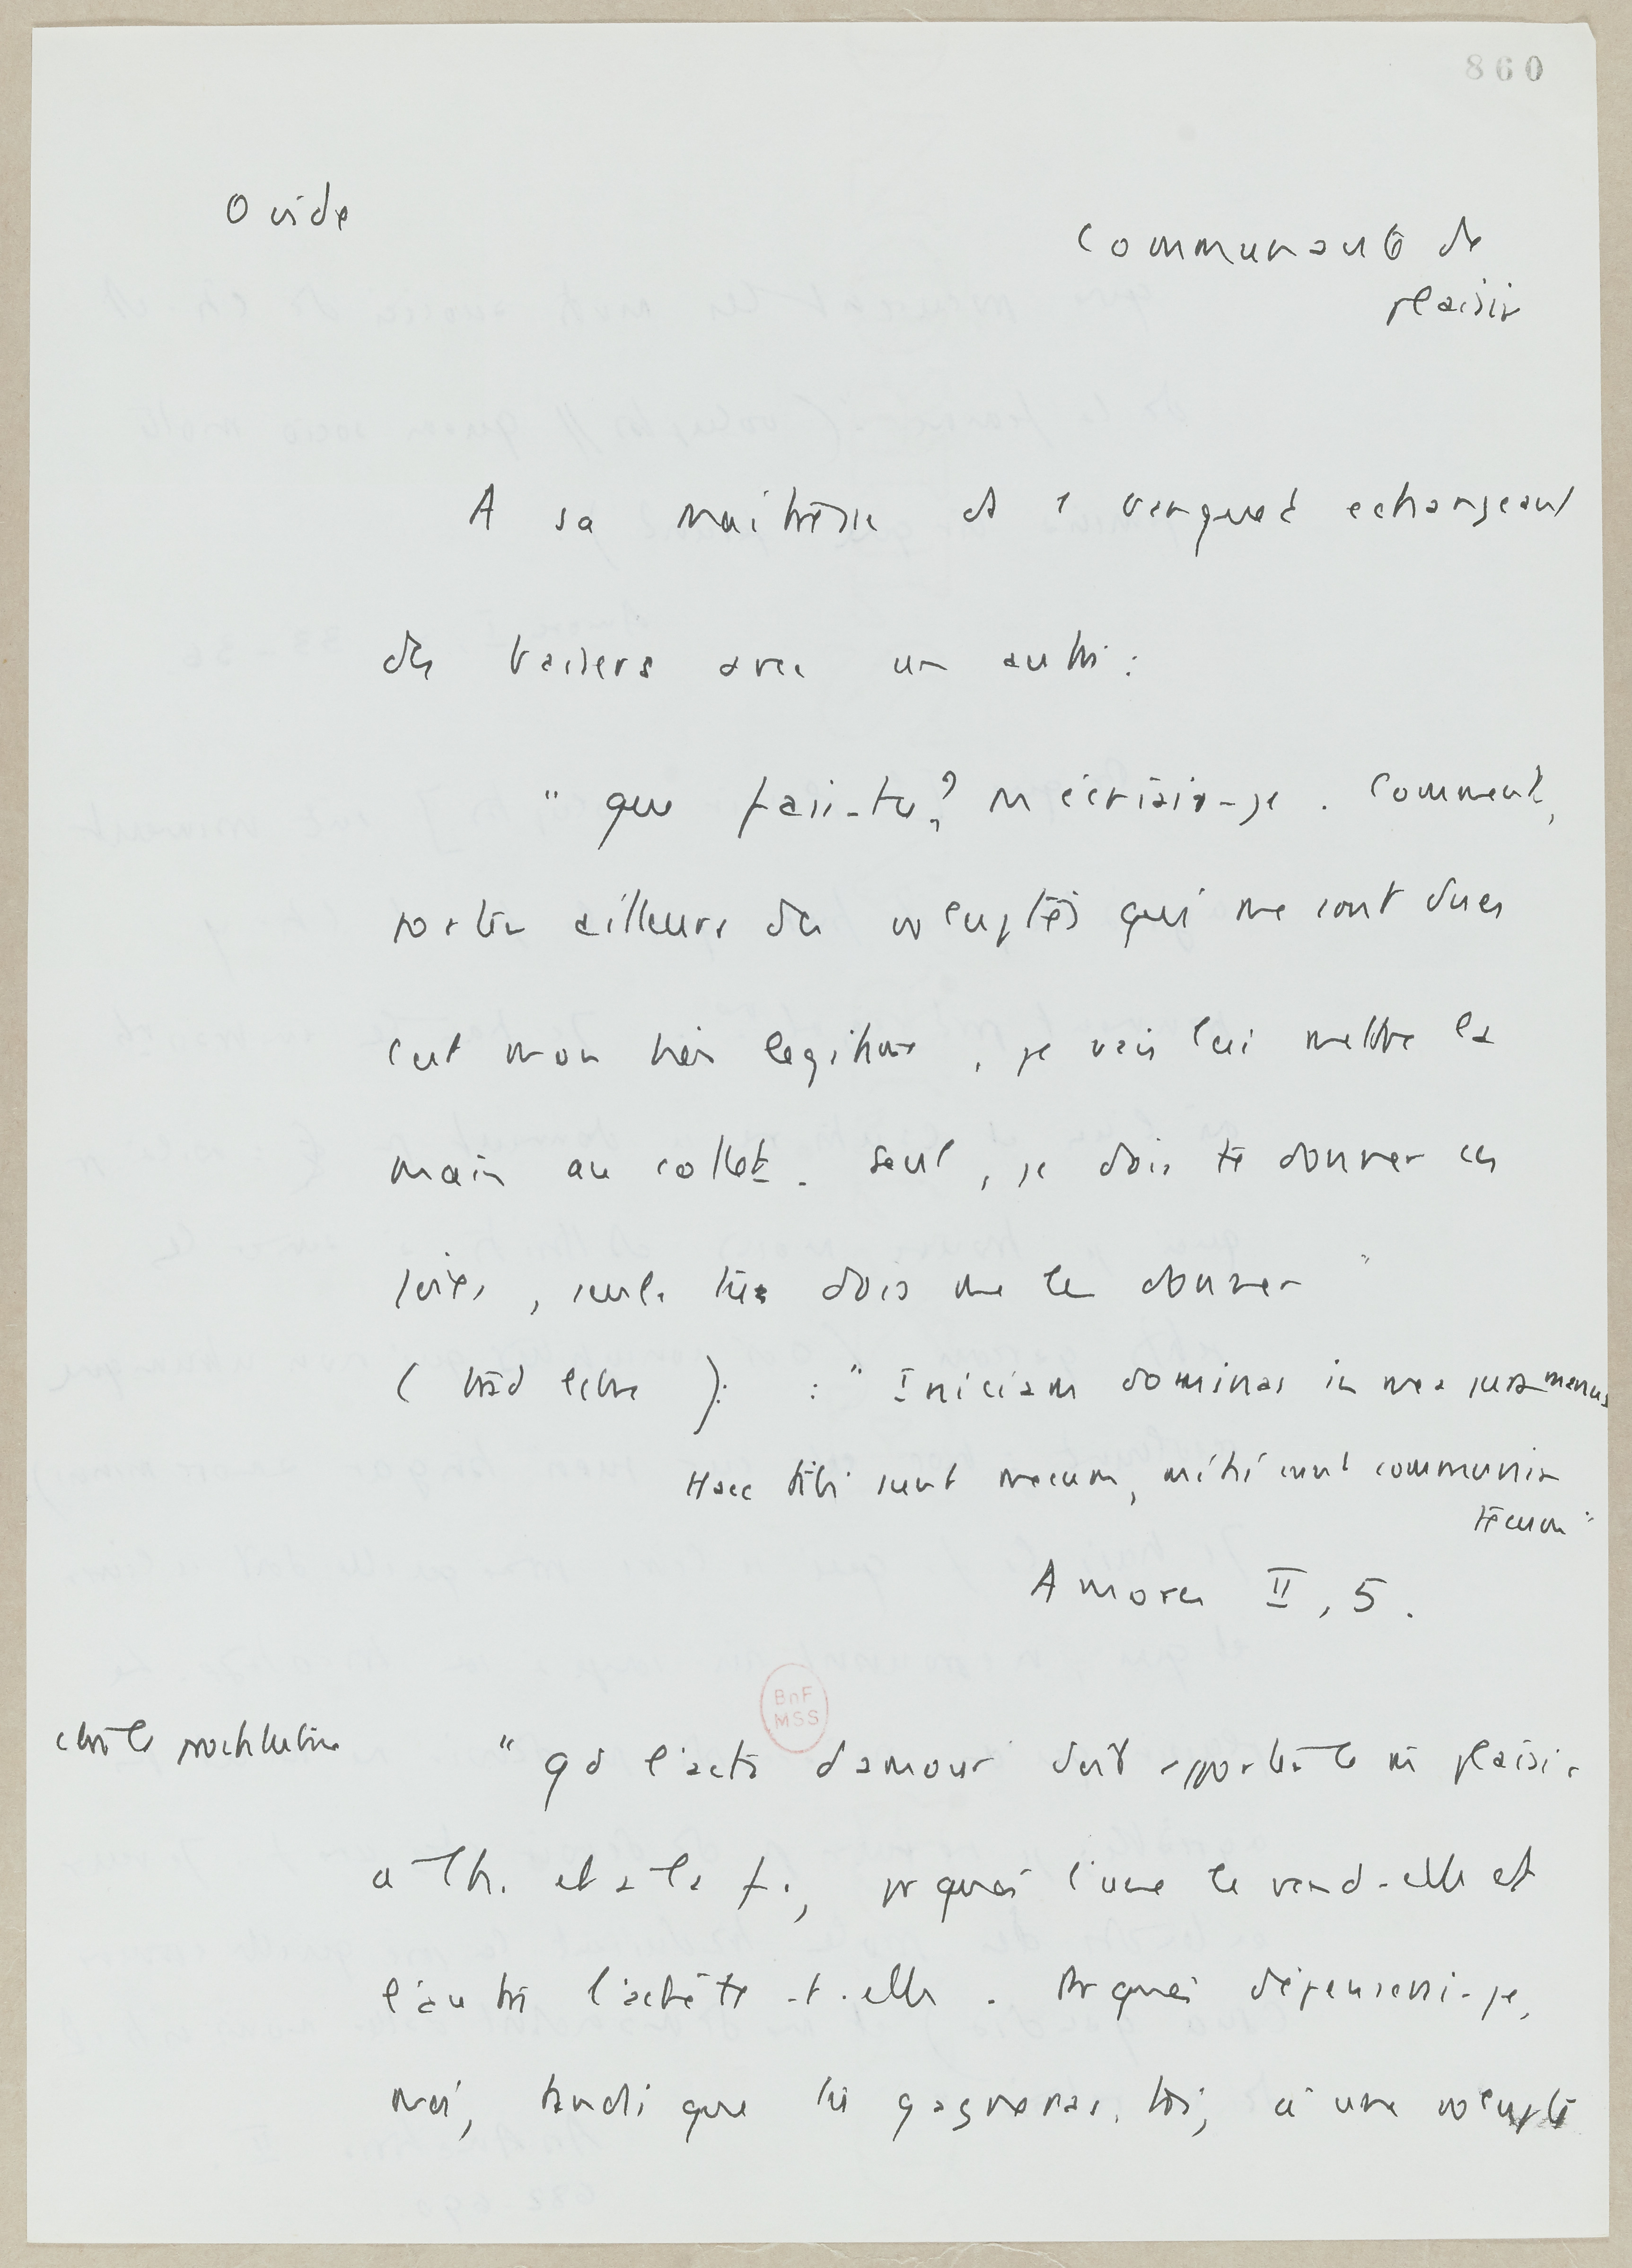 860
Ovide
Communauté de
plaisir
A sa maîtresse et 1 echangeant
des baisers avec un autre :
" que fais-tu ? m'écriais-je . Comment,
porter ailleurs des voluptés qui me sont dues
c'est mon bien legitime , je vais lui mettre la
main au collet . Seul , je dois te donner ces
joies , seule tu dois me les donner "
( trad ) : : " Iniciam dominas in mea iura manus
Haec tibi sunt mecum, mihi sunt communia
tecum "
Amores II , 5 .
BnF
MSS
ctre la prostitution
" qd l'acte d'amour doit apporter le m plaisir
a l'h. et a la f. , pr quoi l'une le vend-elle et
l'autre l'achète-t-elle . Pr quoi dépenserai-je,
moi, tandis que tu gagneras, toi, à une volupté